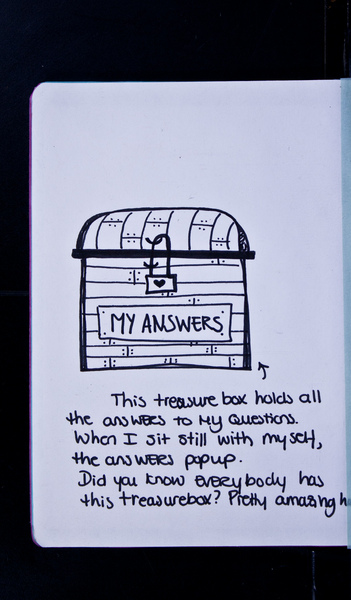 MY ANSWERS
This treasure box holds all
the answers to My Questions.
When I sit still with myself,
the answers popup.
Did you know everybody has
this treasurebox? Pretty amazing h